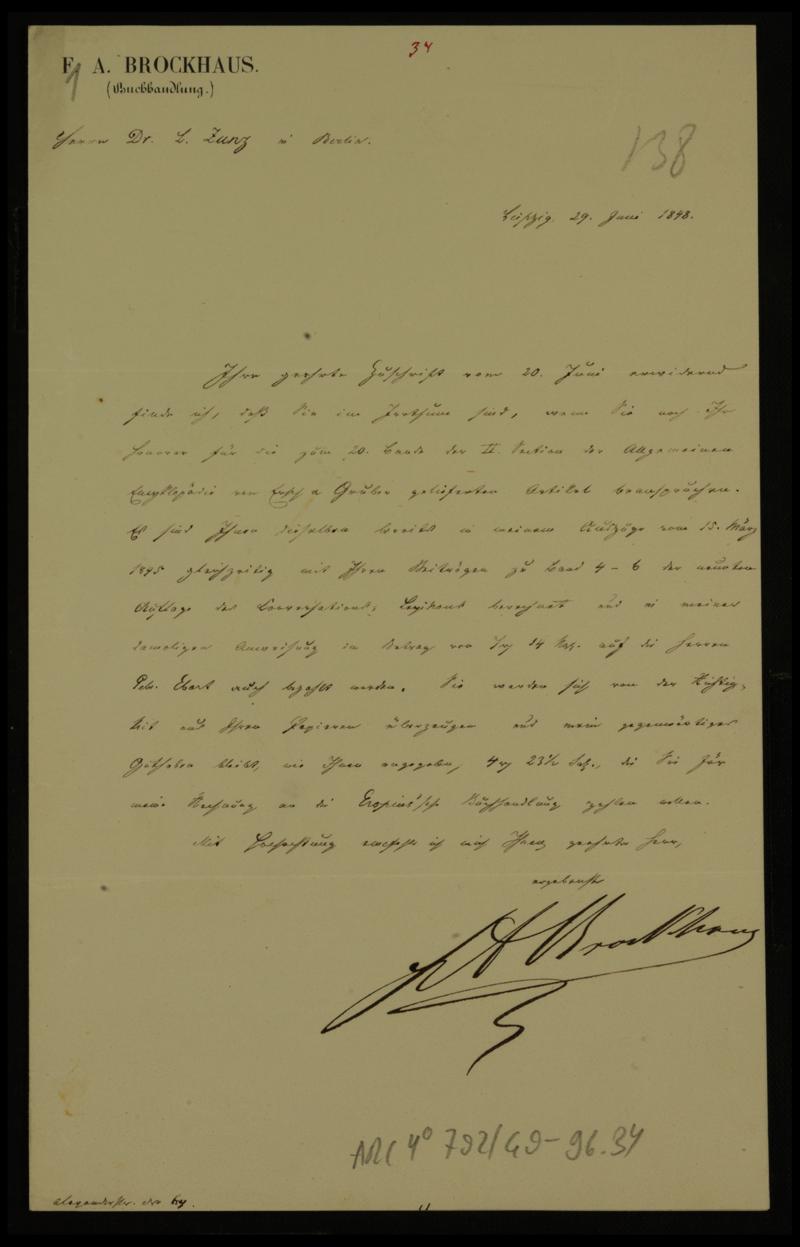 34
F. A. BROCKHAUS.
(Buchhandlung.)
1
Herrn Dr. L. Zunz in Berlin.
138
Leipzig, 29. Juni 1848.
Ihre geehrte Zuschrift vom 20. Juni erwidernd
finde ich, daß Sie im Irrthum sind, wenn Sie noch Ihr
Honorar für die zum 20. Bande der II. Section der Allgemeinen
Encyklopädie von Ersch u Gruber gelieferten Artikel beanspruchen.
Es sind Ihnen dieselben bereits in meinem Auszuge vom 15. März
1845 gleichzeitig mit Ihren Beiträgen zu Band 4 – 6 der neunten
Auflage des Conversations-Lexikons berechnet und in meiner
damaligen Anweisung im Betrag von 14 Ngr. auf die Herren
Geb. Ebart auch bezahlt worden. Sie werden sich von der Richtig-
keit aus Ihren Papieren überzeugen und mein gegenwärtiges
Guthaben bleibt, wie Ihnen angegeben, 4 23½ Sgr., die Sie für
meine Rechnung an die Gropius'sche Buchhandlung zahlen wollen.
Mit Hochachtung empfehle ich mich Ihnen, geehrter Herr,
ergebenst
F A Brockhaus
ARC 4° 792/G9-96.34
Alexanderstr.